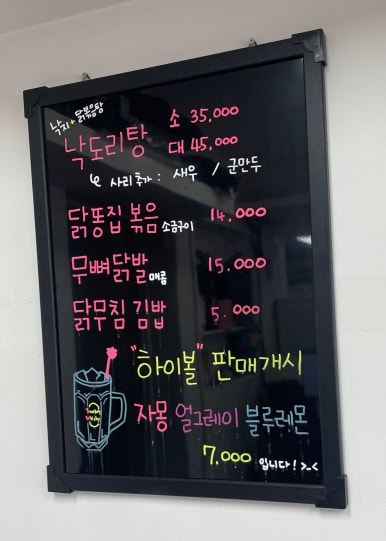 낙지+닭볶음탕
낙도리탕 소 35,000
대 45,000
사리추가 : 새우 / 군만두
닭똥집 볶음 소금구이 14,000
무뼈닭발 매콤 15,000
닭무침 김밥 5.000
"하이볼" 판매개시
자몽 얼그레이 블루레몬
7,000 입니다! >_<